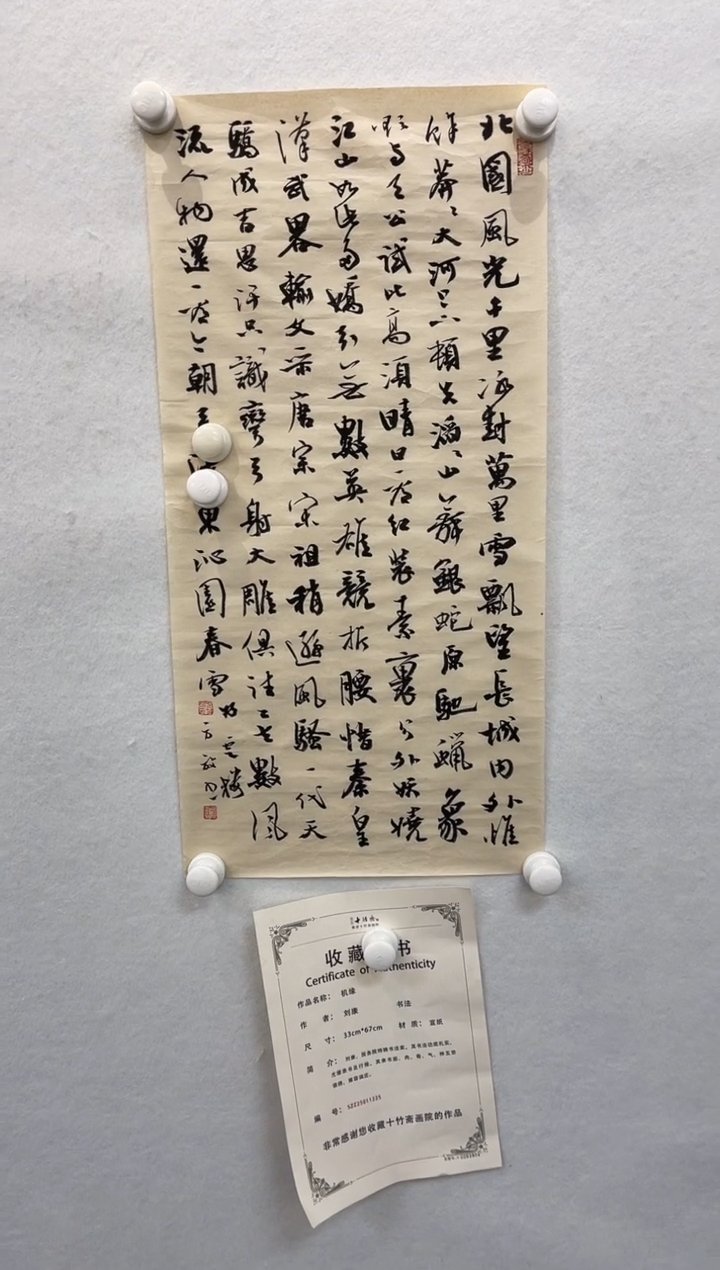 北國風光千里冰封萬里雪飄望長城内外惟
餘莽〻大河上下頓失滔〻山舞銀蛇原馳蠟象
欲与天公試比高須晴日看紅裝素裹分外妖嬈
江山如此多嬌引無數英雄競折腰惜秦皇
漢武畧輸文采唐宗宋祖稍遜風騷一代天
驕成吉思汗只識彎弓射大雕俱往矣數風
流人物還看今朝毛澤東沁園春雪
收藏 书
Certificate of Authenticity
作品名称： 机缘
作 者： 刘康 书法
尺 寸： 33cm*67cm 材 质： 宣纸
简 介：
编 号：
非常感谢您收藏十竹斋画院的作品